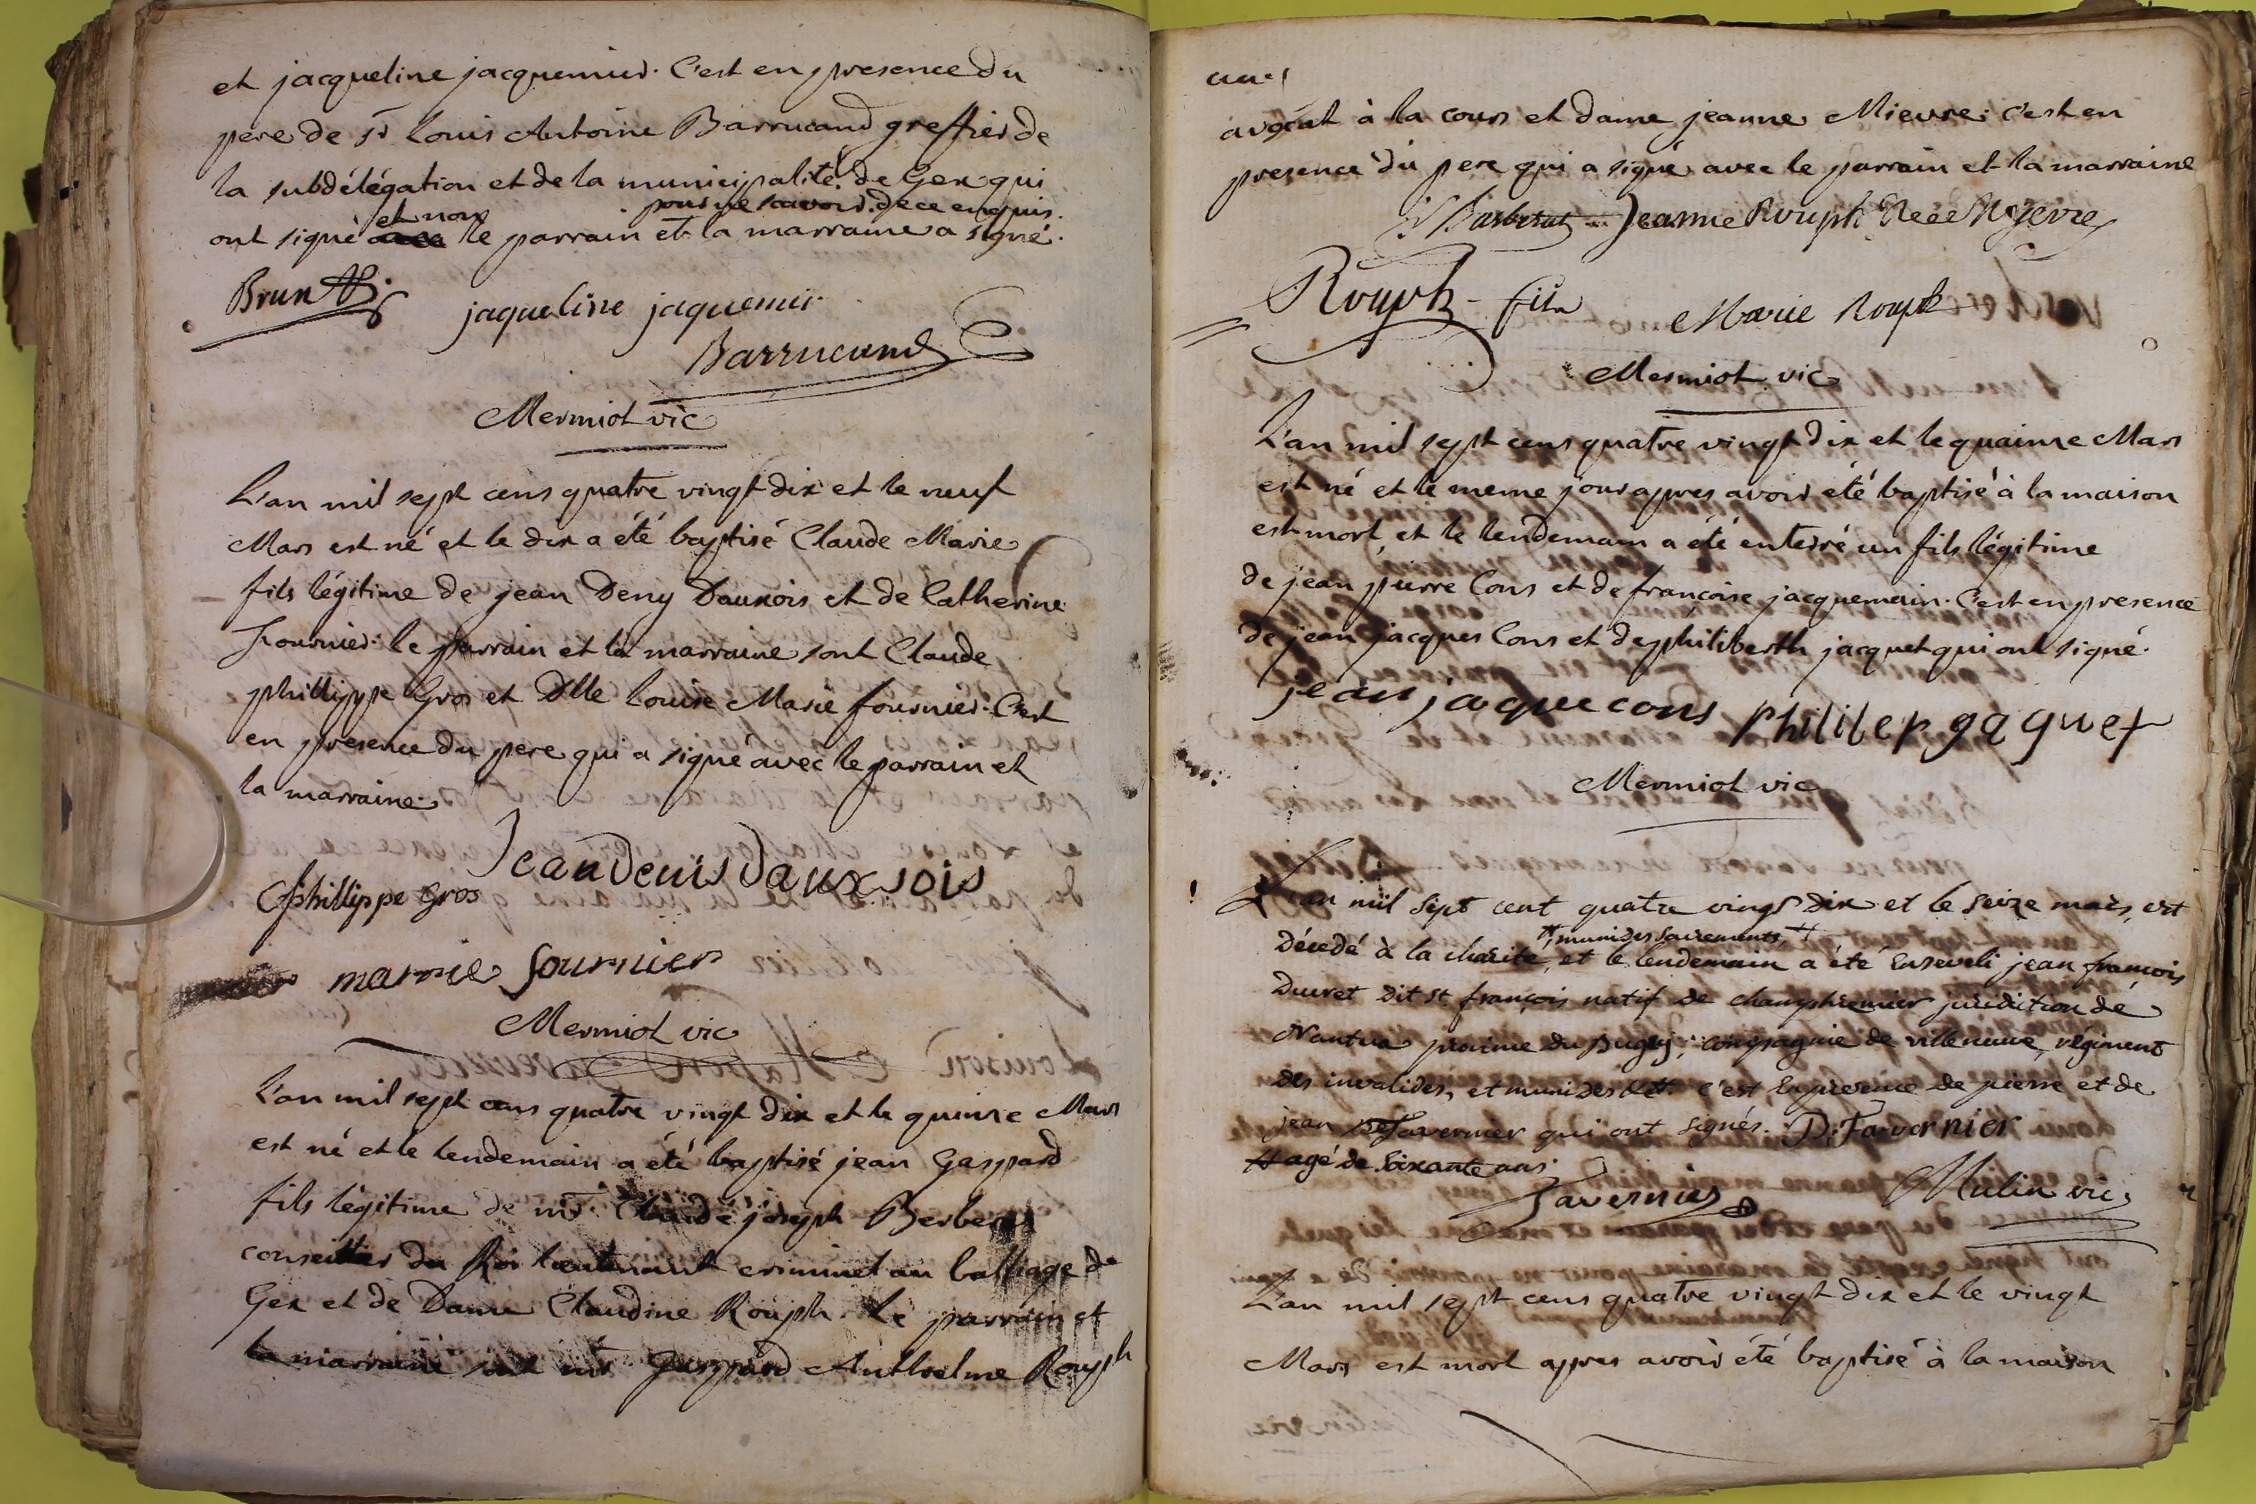 et jacqueline jacquemier. C'est en presence du
pere de sr Louis Antoine Barrucand greffier de
la subdélégation et de la municipalité de Gex qui
et non pour ne savoir de ce enquis.
ont signé avec le parrain et la marraine a signé.
Brun
jaqueline jaquemir
Barrucand
Mermiot vic
L'an mil sept cens quatre vingt dix et le neuf
Mars est né et le dix a été baptisé Claude Marie
fils légitime de jean Deny Dauxois et de Catherine
Fournier. le parrain et la marraine sont Claude
phillippe Gros et Dlle Louise Marie fournier. C'est
en presence du pere qui a signé avec le parrain et
la marraine.
Jean denis dauxsois
C phillippe gros
marrie fournier
Mermiot vic
L'an mil sept cens quatre vingt dix et le quinze Mars
est né et le lendemain a été baptisé jean Gaspard
fils légitime de mr. Claude joseph Berberat
conseiller du Roi lieutenant criminel au balliage de
Gex et de Dame Claudine Rouph. Le parrain et
la marraine sont mr Gaspard Anthelme Rouph
avocat à la cour et dame jeanne Mievre. c'est en
presence du pere qui a signé avec le parrain et la marraine
Barberat Jeanne Rouph Neee Myevre
Rouph fils Marie Rouph
Mermiot vic
L'an mil sept cens quatre vingt dix et le quinze Mars
est né et le meme jour apres avoir été baptisé à la maison
est mort, et le lendemain a été enterré un fils légitime
de jean pierre Cons et de françoise jacquemain. C'est en presence
de jean jacques Cons et de philiberth jacquet qui ont signé.
jean jaque cons phililep gaquet
Mermiot vic
L'an mil sept cent quatre vingt dix et le seize mars, est
++, muni des sacrements, ++
décédé à la charité, et le lendemain a été Enseveli jean françois
Ducret dit st françois natif de champfremier juridition de
Nantua province du Bugey, compagnie de villeneuve, régiment
des invalides, et muni des dts. c'est En presence de pierre et de
jean Tavernier qui ont signés. P. Tavernier
++ agé de soixante ans.
Tavernier Mulin vic
L'an mil sept cens quatre vingt dix et le vingt
Mars est mort apres avoir été baptisé à la maison